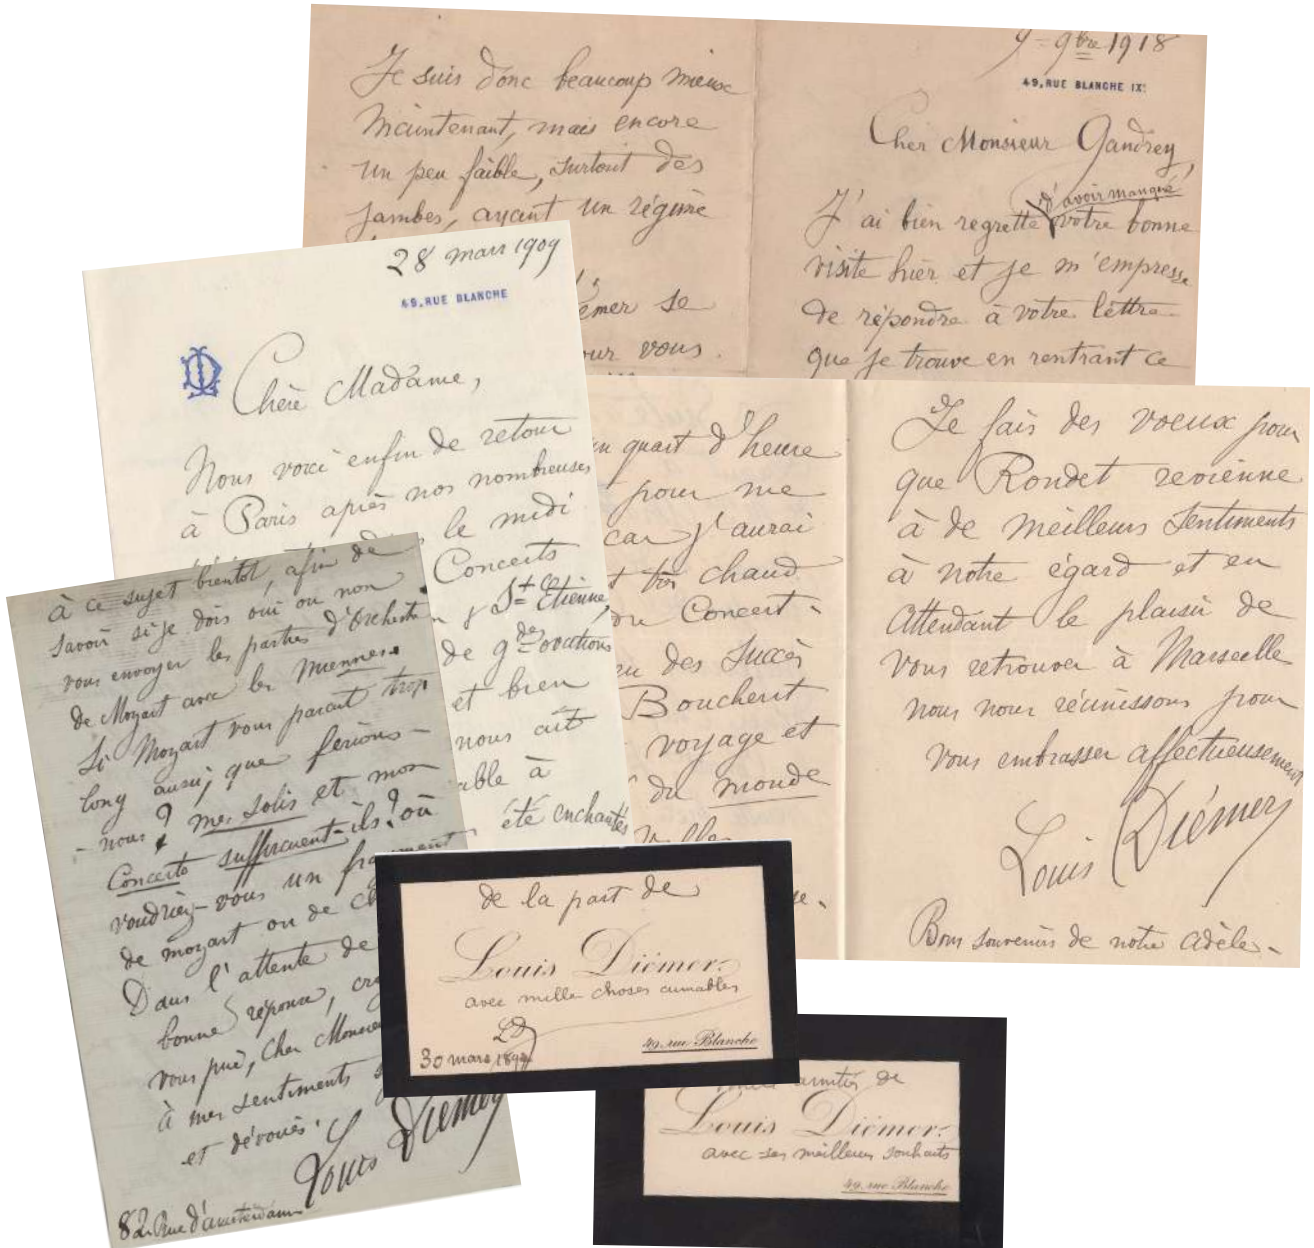 Je suis donc beaucoup mieux
maintenant, mais encore
un peu faible, surtout des
jambes, ayant un régime
émer se
our vous.
9 - 9bre 1918
49, RUE BLANCHE IXe
Cher Monsieur Gandrey,
d'avoir manqué
J'ai bien regretté votre bonne
visite hier et je m'empresse
de répondre à votre lettre
que je trouve en rentrant ce
28 mars 1909
49, RUE BLANCHE
Chère Madame,
Nous voici enfin de retour
à Paris après nos nombreuses
le midi
Concerts
St Etienne,
de gdes ovations
et bien
nous ait
able à
été enchantés
un quart d'heure
pour me
car j'aurai
très chaud
du Concert.
eu des succès
Boucherit
voyage et
du monde
Je fais des voeux pour
que Rondet revienne
à de meilleurs sentiments
à notre égard et en
attendant le plaisir de
vous retrouver à Marseille
nous nous réunissons pour
vous embrasser affectueusement
Louis Diémer
Bons souvenirs de notre Adèle.
à ce sujet bientôt, afin de
savoir si je dois oui ou non
vous envoyer les parties d'Orchestre
de Mozart avec les miennes.
Si Mozart vous parait trop
long aussi, que ferions-
-nous? mes solis et mon
Concerto suffiraient-ils? où
voudriez-vous un fragment
de mozart ou de
Dans l'attente de
bonne réponse,
vous prie, Cher Monsieur
à mes sentiments
et dévoués.
Louis Diémer
82 Rue d'amsterdam
de la part de
Louis Diémer.
avec mille choses aimables
LD
30 mars 1899
49, rue Blanche
amitiés de
Louis Diémer.
avec ses meilleurs souhaits
49, rue Blanche